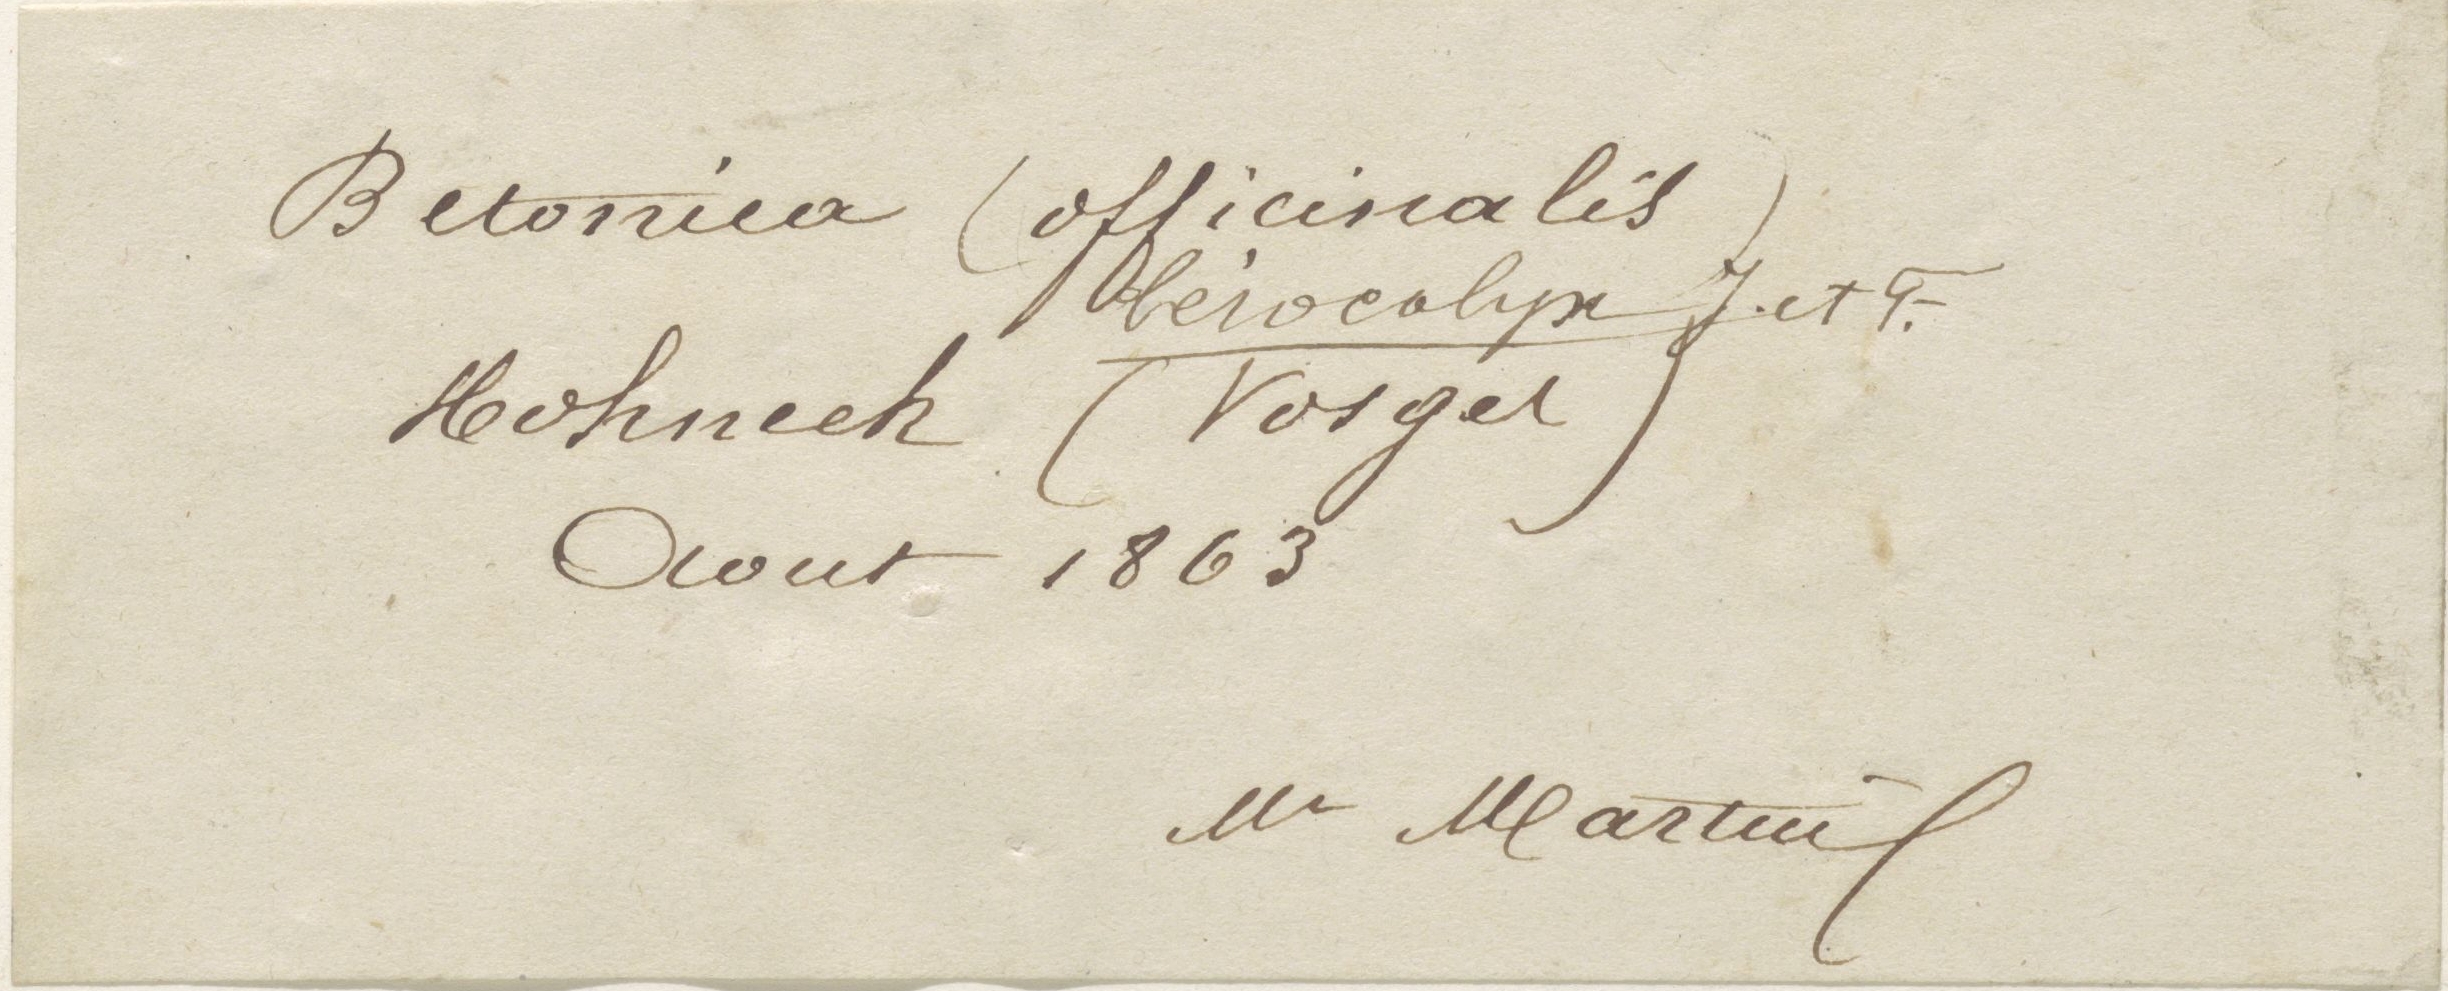 Betonica (officinalis)
leiocalyx J. et F.
Hohneck (Vosges)
Aout 1863
Mr Martin